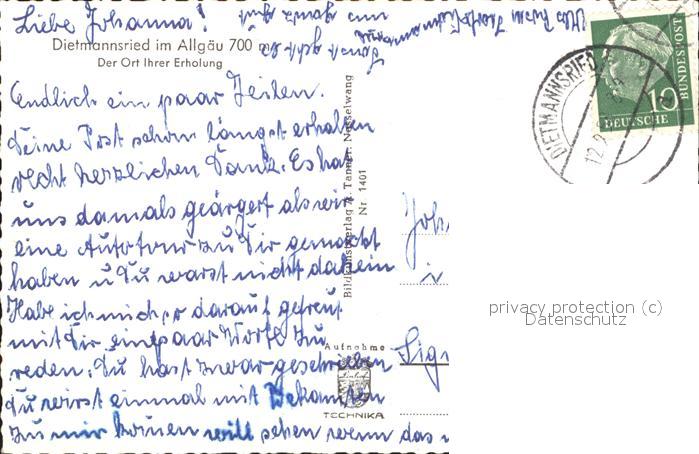 Liebe Johanna!
Dietmannsried im Allgäu 700 m
Der Ort Ihrer Erholung
Endlich ein paar Zeilen.
Deine Post schon längst erhalten
recht herzlichen Dank. Es hat
uns damals geärgert als wir
eine Autotour zu Dir gemacht
haben u Du warst nicht daheim
Habe ich mich so darauf gefreut
mit Dir ein paar Worte zu
reden. Du hast zwar geschrieben
Du wirst einmal mit Bekannten
zu mir kommen will sehen wenn das
Bildkunstverlag A. Tanner, Nesselwang
Nr. 1401
Aufnahme
TECHNIKA
Joh
i
Sig
DIETMANNSRIED
12.
10
DEUTSCHE
BUNDESPOST
privacy protection (c)
Datenschutz